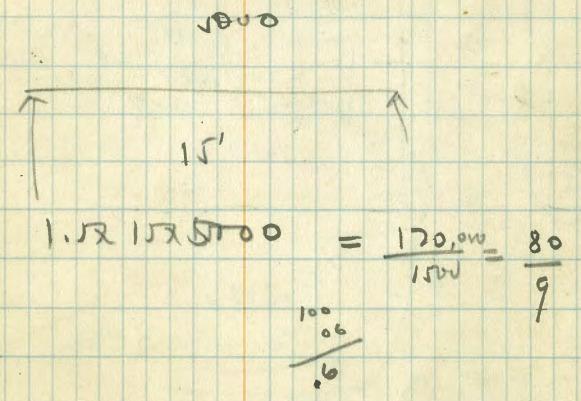 5000
15'
1.5 x 15 x 5000 = 120,000 / 1500 = 80 / 9
100
06
.6